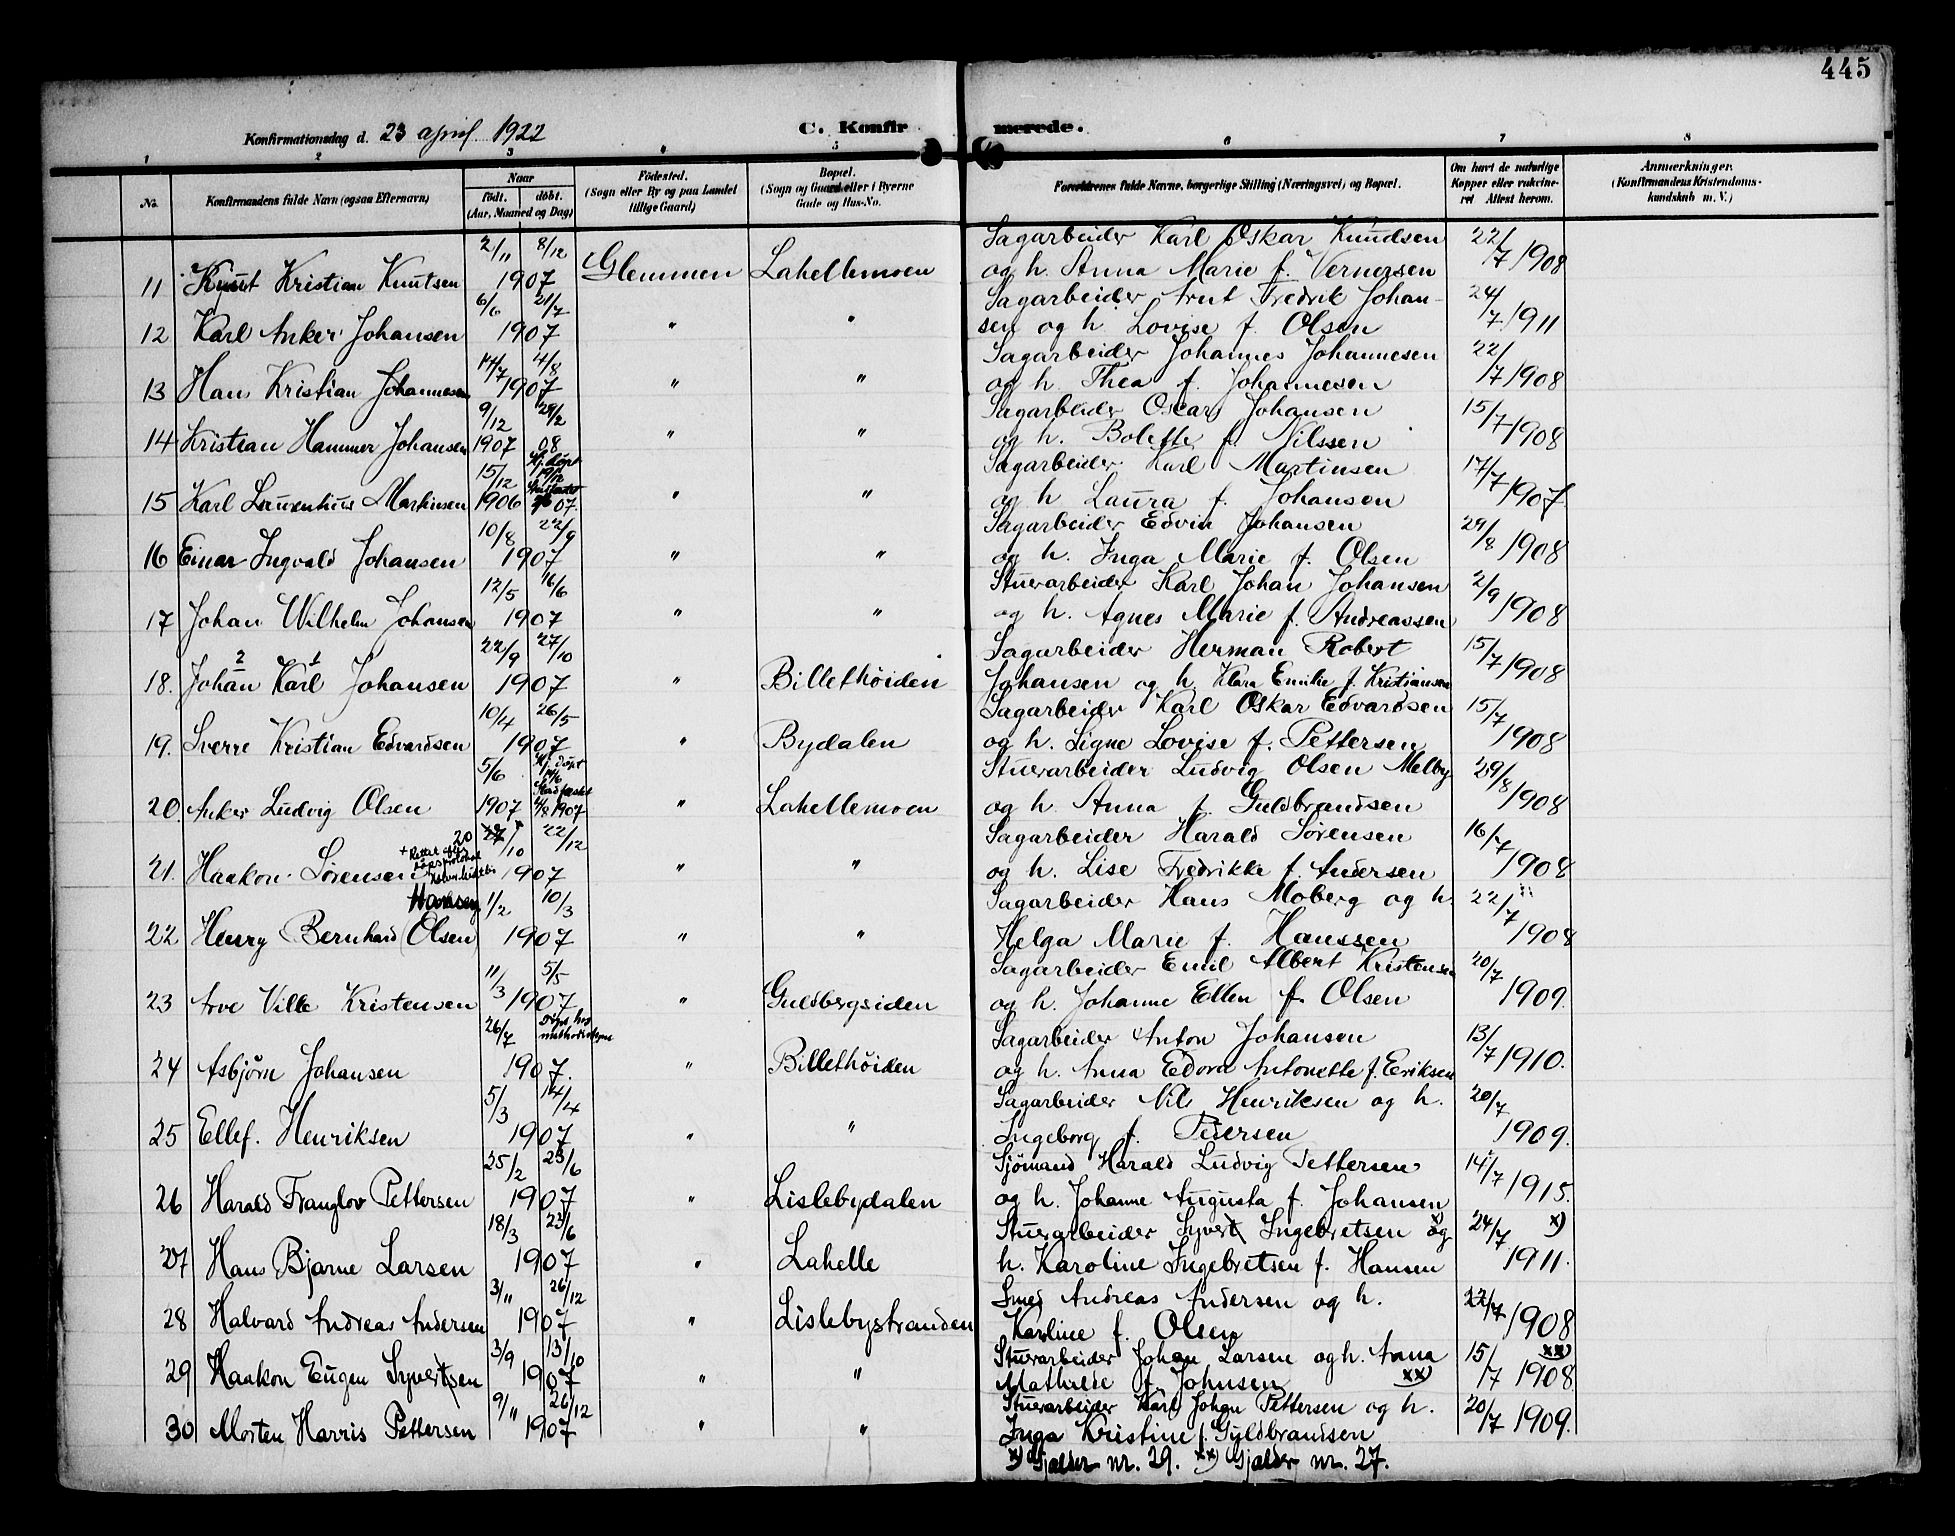 445
Konfirmationsdag d. 23 april 1922
C. Konfirmerede.
1 2 3 4 5 6 7 8
No. Konfirmandens fulde Navn (ogsaa Efternavn) Naar født. døbt. (Aar, Maaned og Dag) Fødested. (Sogn eller By og paa Landet tillige Gaard) Bopæl. (Sogn og Gaard eller i Byerne Gade og Hus-No. Forældrenes fulde Navne, borgerlige Stilling (Næringsvei) og Bopæl. Om havt de naturlige Kopper eller vakcineret Attest herom. Anmærkninger. (Konfirmandens Kristendomskundskab m. V.)
2/11 8/12 Sagarbeider Karl Oskar Knudsen 22/7
11 Knut Kristian Knutsen 1907 Glemmen Lahellemoen og h. Anna Marie f. Vernersen 1908
6/6 21/7 Sagarbeider Arnt Fredrik Johan- 24/7
12 Karl Anker Johansen 1907 " " sen og h. Lovise f. Olsen 1911
14/7 4/8 Sagarbeider Johannes Johannesen 22/7
13 Hans Kristian Johannesen 1907 " " og h. Thea f. Johannesen 1908
9/12 29/2 Sagarbeider Oscar Johansen 15/7
14 Kristian Hammer Johansen 1907 08 " " og h. Bolette f. Nilssen 1908
15/12 Hj. døpt Sagarbeider Karl Martinsen 17/7
15 Karl Laurentius Martinsen 1906 07. " " og h Laura f. Johansen 1907.
10/8 22/9 Sagarbeider Edvin Johansen 29/8
16 Einar Ingvald Johansen 1907 " " og h. Inga Marie f. Olsen 1908
12/5 16/6 Stuerarbeider Karl Johan Johansen 2/9
17 Johan Wilhelm Johansen 1907 " " og h. Agnes Marie f. Andreassen 1908
2 1 22/9 27/10 Sagarbeider Herman Robert 15/7
18. Johan Karl Johansen 1907 " Billethöiden Johansen og h Klara Emilie f. Kristiansen 1908
10/4 26/5 Sagarbeider Karl Oskar Edvardsen 15/7
19. Sverre Kristian Edvardsen 1907 " Bydalen og h. Signe Lovise f. Pettersen 1908
5/6 Hj. døpt Stuerarbeider Ludvig Olsen Melby 29/8
20. Anker Ludvig Olsen 1907 Stadfæstet 4/8 1907 " Lahellemoen og h. Anna f. Guldbrandsen 1908
20 /10 22/12 Sagarbeider Harald Sørensen 16/7
21. Haakon Sørensen + Rettet efter 1907 " " og h. Lise Fredrikke f. Andersen 1908
Hansen 1/2 10/3 Sagarbeider Hans Moberg og h. 22/7
22 Henry Bernhard (Olsen) 1907 " " Helga Marie f. Hanssen 1908
11/3 5/5 Sagarbeider Emil Albert Kristensen 20/7
23 Arve Ville Kristensen 1907 " Guldbergsiden og h. Johanne Ellen f. Olsen 1909.
26/7 Döpt hos methodisterne Sagarbeider Anton Johansen 13/7
24 Asbjørn Johansen 1907. " Billethöiden og h. Anna Edora Antonette f. Eriksen 1910.
5/3 14/4 Sagarbeider Nils Henriksen og h. 20/7
25 Ellef. Henriksen 1907 " " Ingeborg f. Pedersen 1909.
25/2 23/6 Sjömand Harald Ludvig Pettersen 14/7
26 Harald Franglov Pettersen 1907 " Lislebydalen og h. Johanne Augusta f. Johansen 1915.
18/3 23/6 Stuerarbeider Syvert Ingebretsen og x) 24/7 x)
27 Hans Bjarne Larsen 1907 " Lahelle h. Karoline Ingebretsen f. Hansen 1911.
3/11 26/12 Smed Andreas Andersen og h. 22/7
28 Halvard Andreas Andersen 1907 " Lislebystranden Karline f. Olsen 1908
3/9 13/10 Stuerarbeider Johan Larsen og h. Anna 15/7 xx)
29 Haakon Eugen Syvertsen 1907 " " Mathilde f. Johnsen xx) 1908
9/11 26/12 Stuerarbeider Karl Johan Pettersen og h. 20/7
30 Morten Harris Pettersen 1907 " " Inga Kristine f. Gyldbrandsen 1909.
x) Gjælder nr. 29. xx) Gjælder nr. 27.